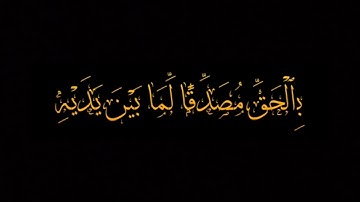 بِٱلۡحَقِّ مُصَدِّقٗا لِّمَا بَيۡنَ يَدَيۡهِۚ